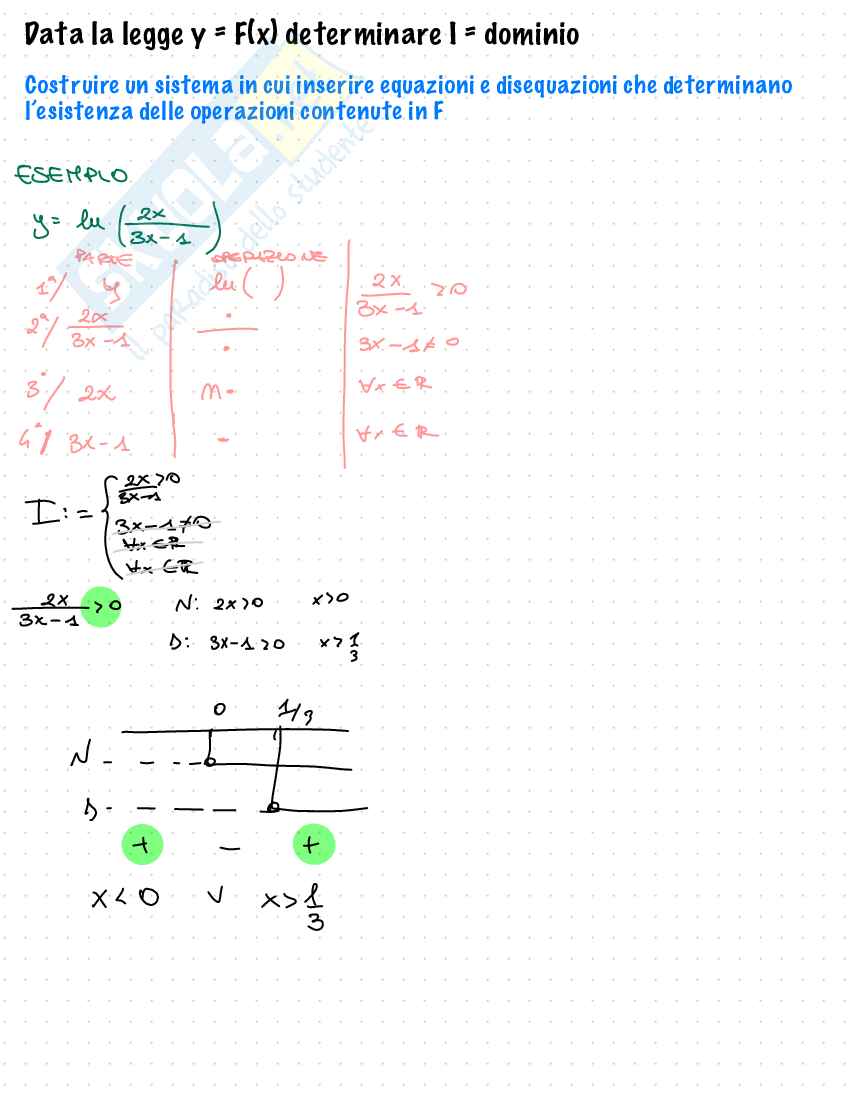 Data la legge y = F(x) determinare I = dominio
Costruire un sistema in cui inserire equazioni e disequazioni che determinano
l'esistenza delle operazioni contenute in F
ESEMPIO
y = ln (2x / 3x-1)
PARTE OPERAZIONE
1ª/ y ln ( ) 2x / 3x-1 > 0
2ª/ 2x / 3x-1 · / · 3x-1 ≠ 0
3ª/ 2x m· ∀x ∈ ℝ
4ª/ 3x-1 - ∀x ∈ ℝ
I := { 2x / 3x-1 > 0
3x-1 ≠ 0
∀x ∈ ℝ
∀x ∈ ℝ
2x / 3x-1 > 0 N: 2x > 0 x > 0
D: 3x-1 > 0 x > 1/3
0 1/3
N
D
+ - +
x < 0 ∨ x > 1/3
SKUOLA
il paradiso dello studente